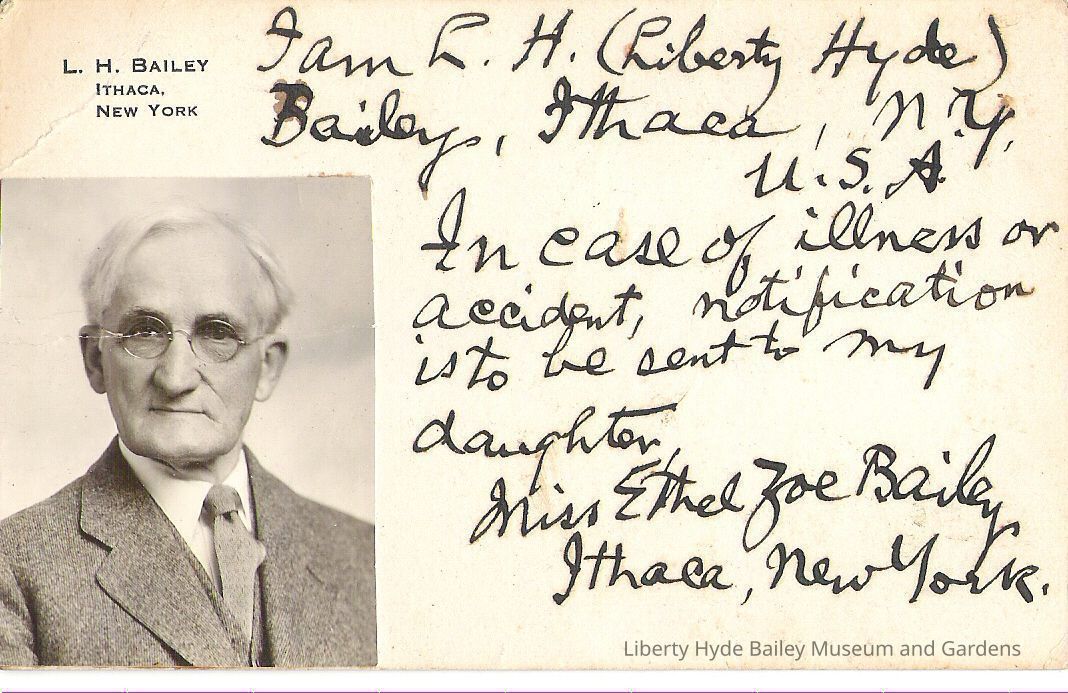 L. H. BAILEY
ITHACA,
NEW YORK
I am L. H. (Liberty Hyde)
Bailey, Ithaca, N.Y.
U.S.A.
In case of illness or
accident, notification
is to be sent to my
daughter,
Miss Ethel Zoe Bailey,
Ithaca, New York.
Liberty Hyde Bailey Museum and Gardens